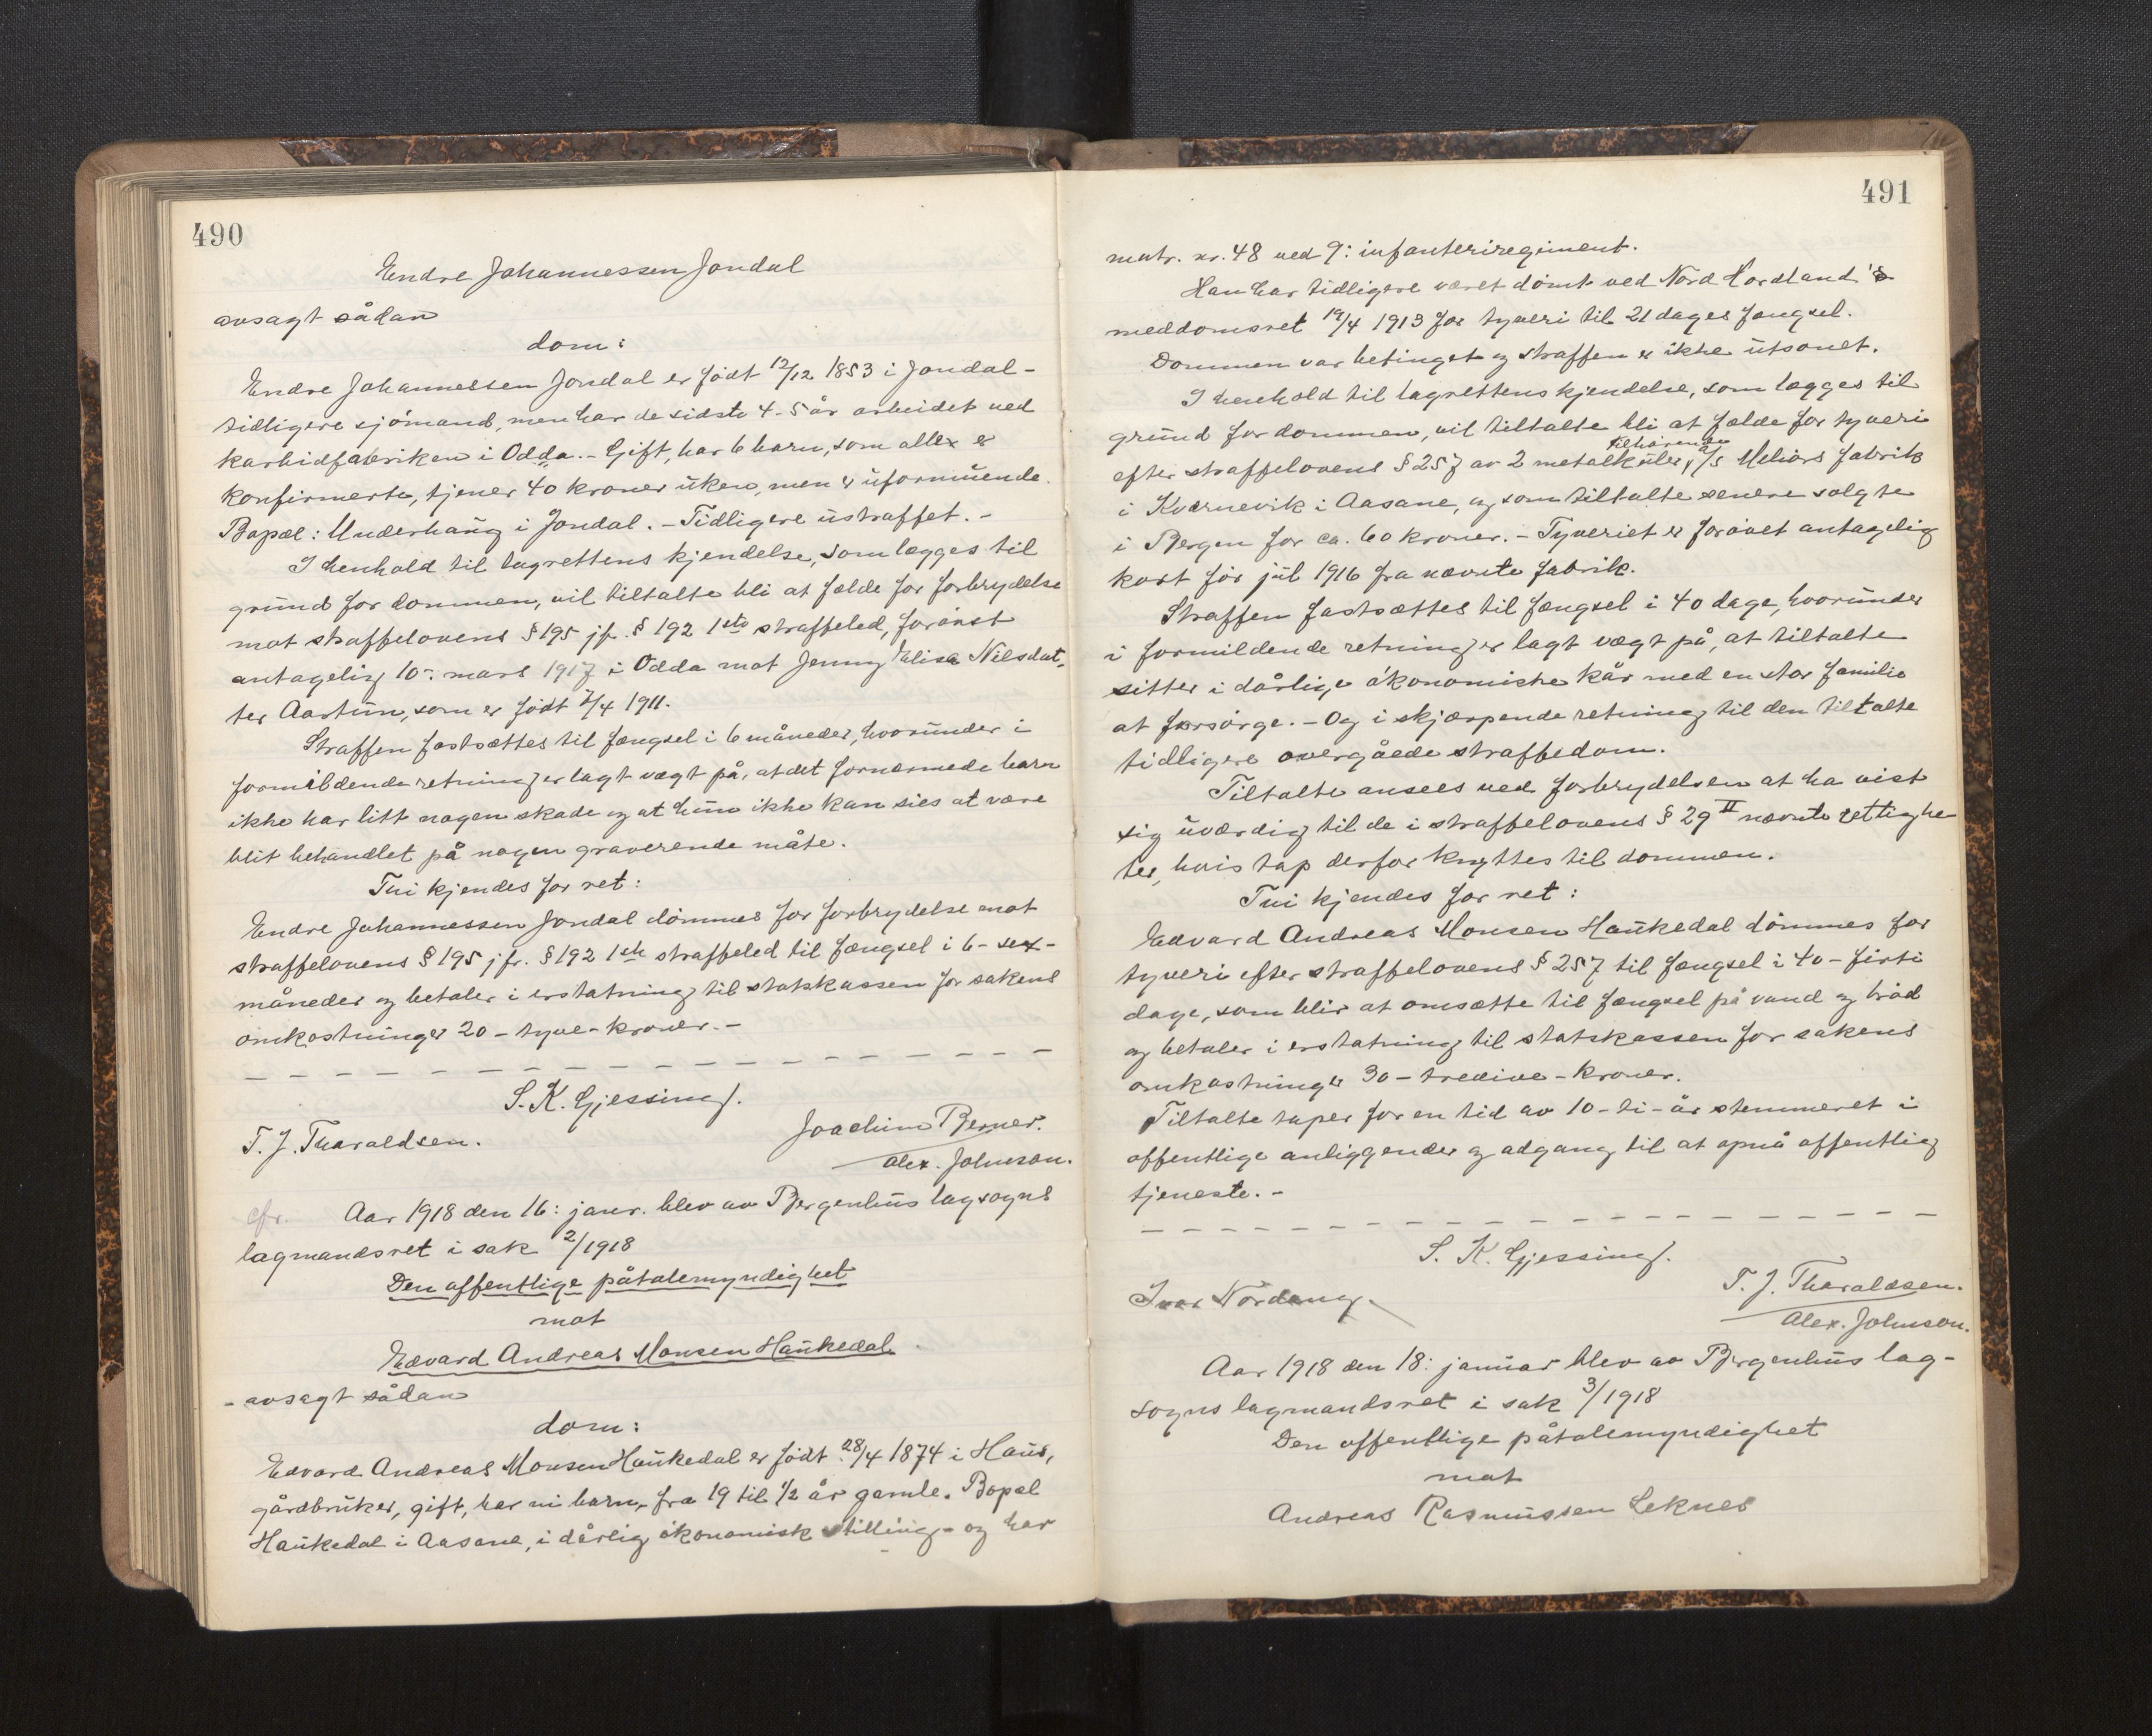 490
Endre Johannessen Jondal
avsagt sådan
dom:
Endre Johannessen Jondal er født 12/12 1853 i Jondal -
tidligere sjömand, men har de sidste 4-5 år arbeidet ved
karbidfabriken i Odda. - Gift, har 6 barn, som alle er
konfirmerte, tjener 40 kroner uken, men er uformuende.
Bopæl: Underhaug i Jondal. - Tidligere ustraffet. -
I henhold til lagrettens kjendelse, som lægges til
grund for dommen, vil tiltalte bli at fælde for forbrydelse
mot straffelovens § 195 jfr. § 192 1ste straffeled, forövet
antagelig 10: mars 1917 i Odda mot Jenny Elise Nilsdat-
ter Aartun, som er født 7/4 1911.
Straffen fastsættes til fængsel i 6 måneder, hvorunder i
formildende retning er lagt vægt på, at det fornærmede barn
ikke har litt nogen skade og at hun ikke kan sies at være
blit behandlet på nogen graverende måte.
Thi kjendes for ret:
Endre Johannessen Jondal dömmes for forbrydelse mot
straffelovens § 195 jfr. § 192 1ste straffeled til fængsel i 6 - sex -
måneder og betaler i erstatning til statskassen for sakens
omkostninger 20 - tyve - kroner. -
S. K. Gjessing.
T. J. Tharaldsen.
Joachim Berner.
Alex. Johnson.
cfr. Aar 1918 den 16: janr. blev av Bergenhus lagsogns
lagmandsret i sak 2/1918
Den offentlige påtalemyndighet
mot
Edvard Andreas Monsen Haukedal
- avsagt sådan
dom:
Edvard Andreas Monsen Haukedal er født 28/4 1874 i Haus,
gårdbruker, gift, har ni barn, fra 19 til 1/2 år gamle. Bopæl
Haukedal i Aasane, i dårlig ökonomisk stilling - og har
491
matr. nr. 48 ved 9: infanteriregiment.
Han har tidligere været dömt ved Nord Hordland's
meddomsret 19/4 1913 for tyveri til 21 dages fængsel.
Dommen var betinget og straffen er ikke utsonet.
I henhold til lagrettens kjendelse, som lægges til
grund for dommen, vil tiltalte bli at fælde for tyveri
efter straffelovens § 257 av 2 metalkuler, tilhörende a/s Meliors fabrik
i Kværnevik i Aasane, og som tiltalte senere solgte
i Bergen for ca. 60 kroner. - Tyveriet er forövet antagelig
kort för jul 1916 fra nævnte fabrik.
Straffen fastsættes til fængsel i 40 dage, hvorunder
i formildende retning er lagt vægt på, at tiltalte
sitter i dårlige ökonomiske kår med en stor familie
at forsörge. - Og i skjærpende retning til den tiltalte
tidligere overgåede straffedom.
Tiltalte ansees ved forbrydelsen at ha vist
sig uværdig til de i straffelovens § 29 II nævnte rettighe
ter, hvis tap derfor knyttes til dommen.
Thi kjendes for ret:
Edvard Andreas Monsen Haukedal dömmes for
tyveri efter straffelovens § 257 til fængsel i 40 - firti
dage, som blir at omsætte til fængsel på vand og bröd
og betaler i erstatning til statskassen for sakens
omkostninger 30 - tredive - kroner.
Tiltalte taper for en tid av 10 - ti - år stemmeret i
offentlige anliggender og adgang til at opnå offentlig
tjeneste. -
S. K. Gjessing.
Ivar Nordang.
T. J. Tharaldsen.
Alex. Johnson.
Aar 1918 den 18: januar blev av Bergenhus lag-
sogns lagmandsret i sak 3/1918
Den offentlige påtalemyndighet
mot
Andreas Rasmussen Leknes